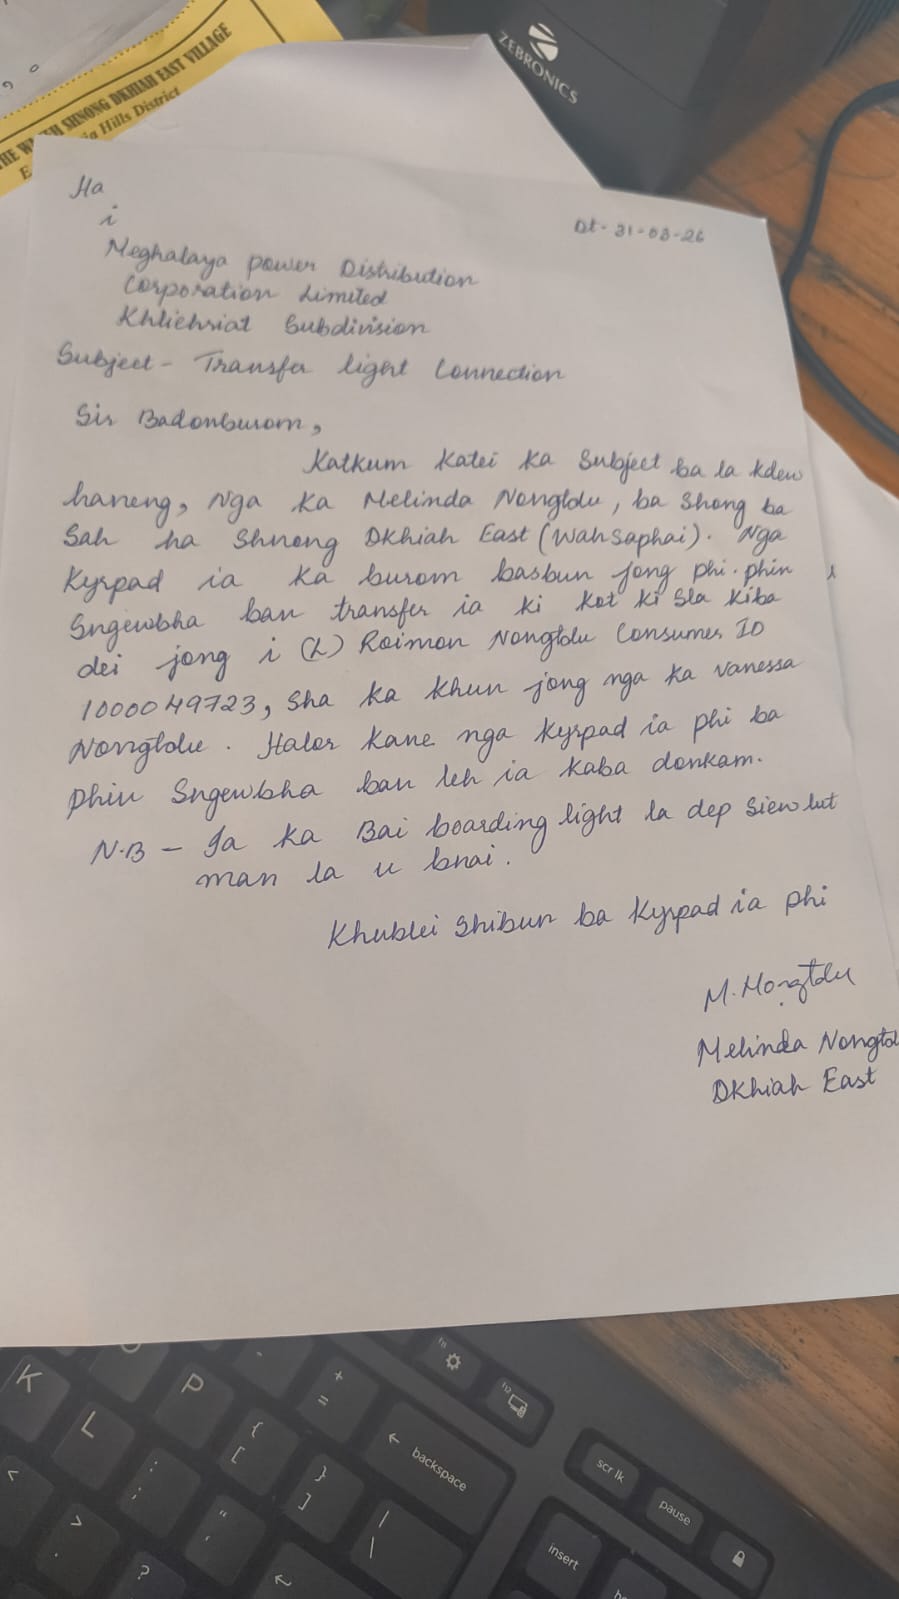 ZEBRONICS
SHNONG DKHIAH EAST VILLAGE
Hills District
Ha
i
Dt- 31-03-26
Meghalaya power Distribution
Corporation Limited
Khliehriat Subdivision
Subject - Transfer light Connection
Sir Badonburom,
Katkum katei ka Subject ba la kdew
haneng, Nga ka Melinda Nongtdu, ba Shong ba
Sah ha Shnong Dkhiah East (Wahsaphai). Nga
Kyrpad ia ka burom basbun jong phi. phin
Sngewbha ban transfer ia ki kot ki Sla kiba
dei jong i (L) Raimon Nongtdu Consumer ID
1000049723, Sha ka khun jong nga ka vanessa
Nongtdu. Halor kane nga kyrpad ia phi ba
phin Sngewbha ban leh ia kaba donkam.
N.B - Ia ka Bai boarding light la dep Siew lut
man la u bnai.
Khublei Shibun ba kyrpad ia phi
M. Nongtdu
Melinda
Dkhiah East
K
P
L
+
=
{
[
}
]
backspace
f11
f12
scr lk
pause
insert
:
;
"
'
|
\
<
>
.
?